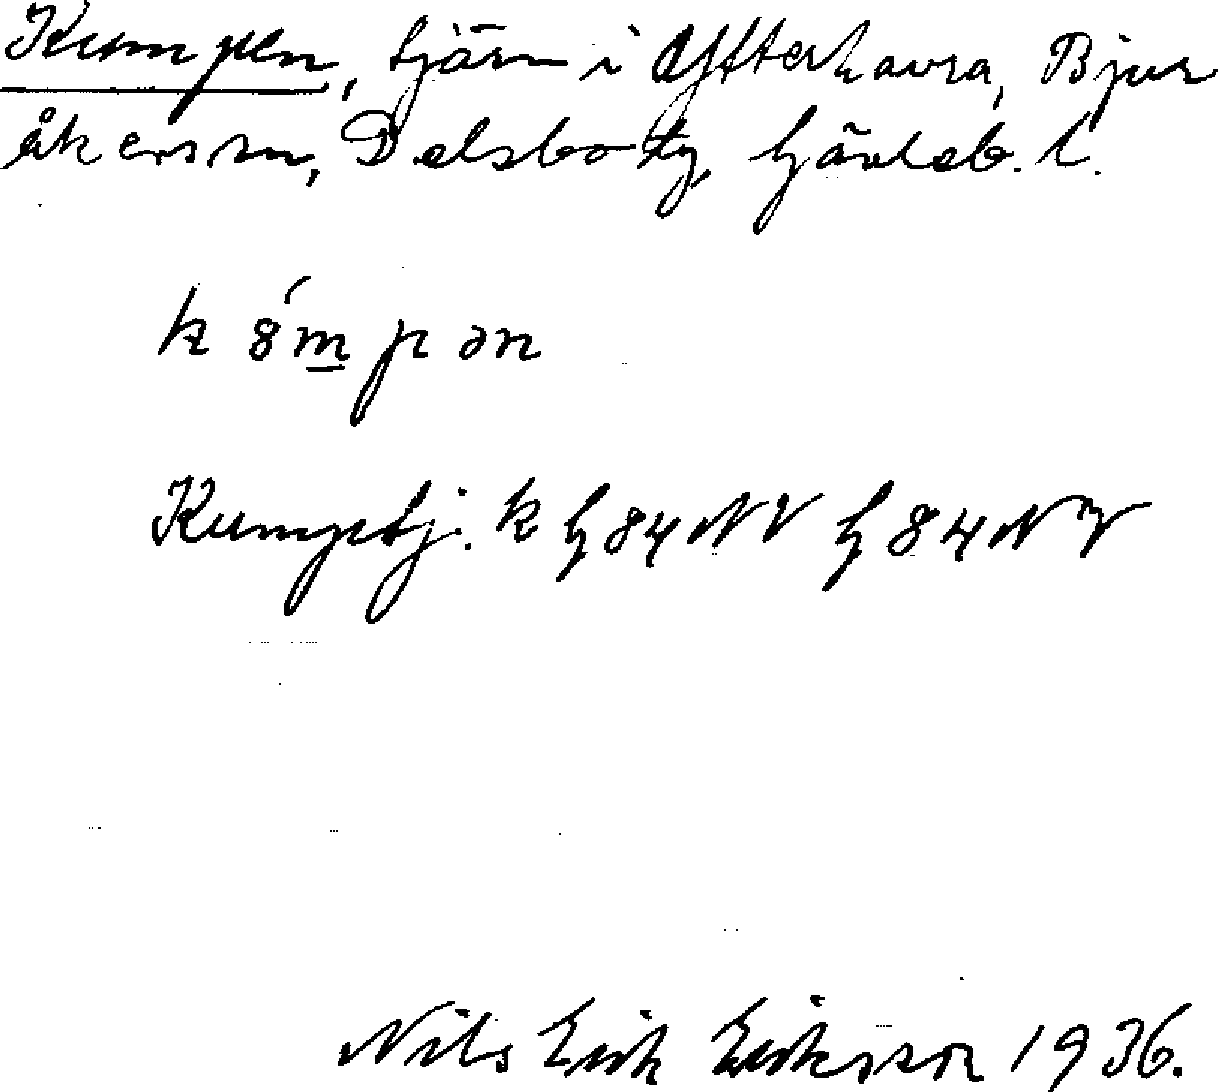 Kumpen, tjärn i Ytterhavra, Bjur
åkers sn, Delsbo tg, Gävleb. l.
k 8́m̲pən
Kumptj. k G84NV G84NV
Nils Erik Eriksson 1936.